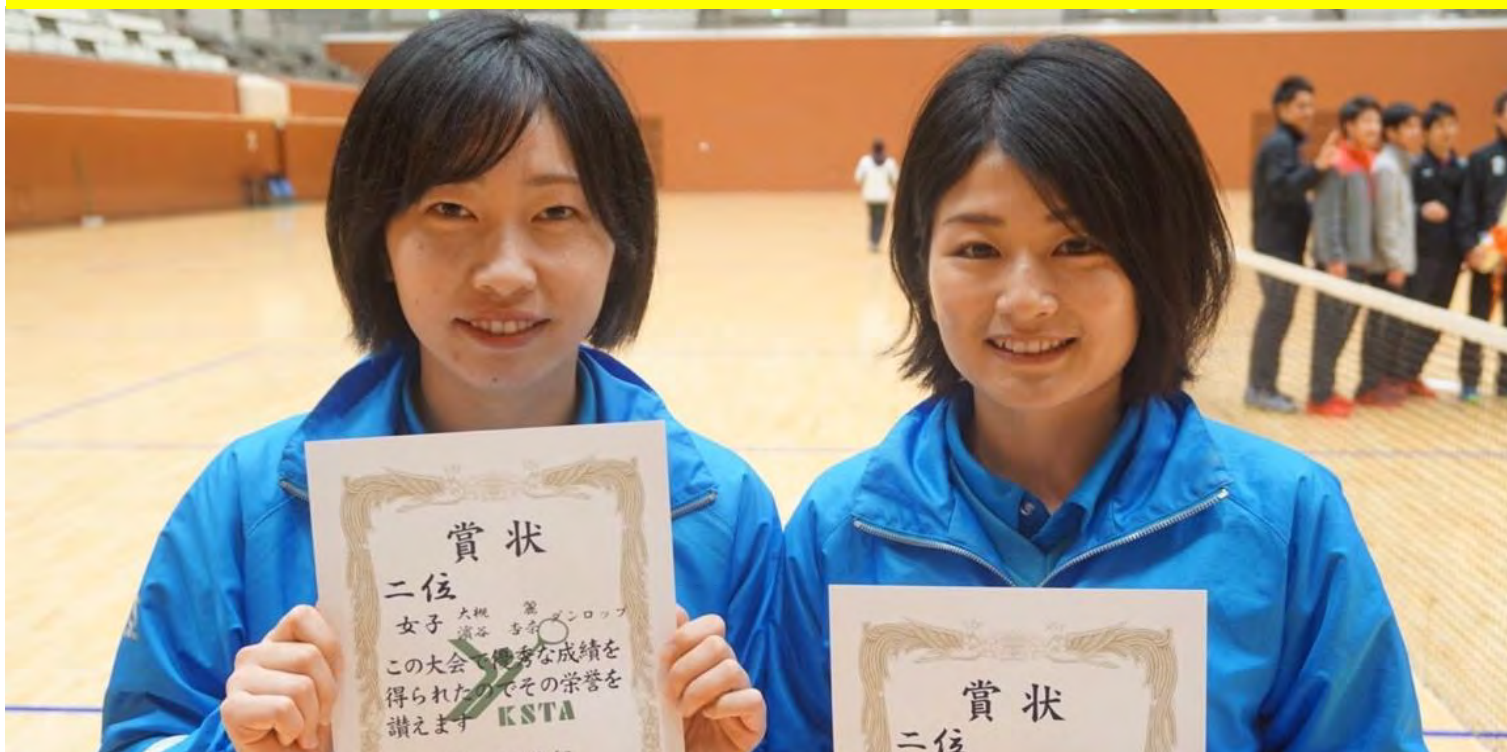 賞状
二位
女子 大槻 麗 ダンロップ
濱谷 杏奈
この大会で優秀な成績を
得られたのでその栄誉を
讃えます
KSTA
賞状
二位